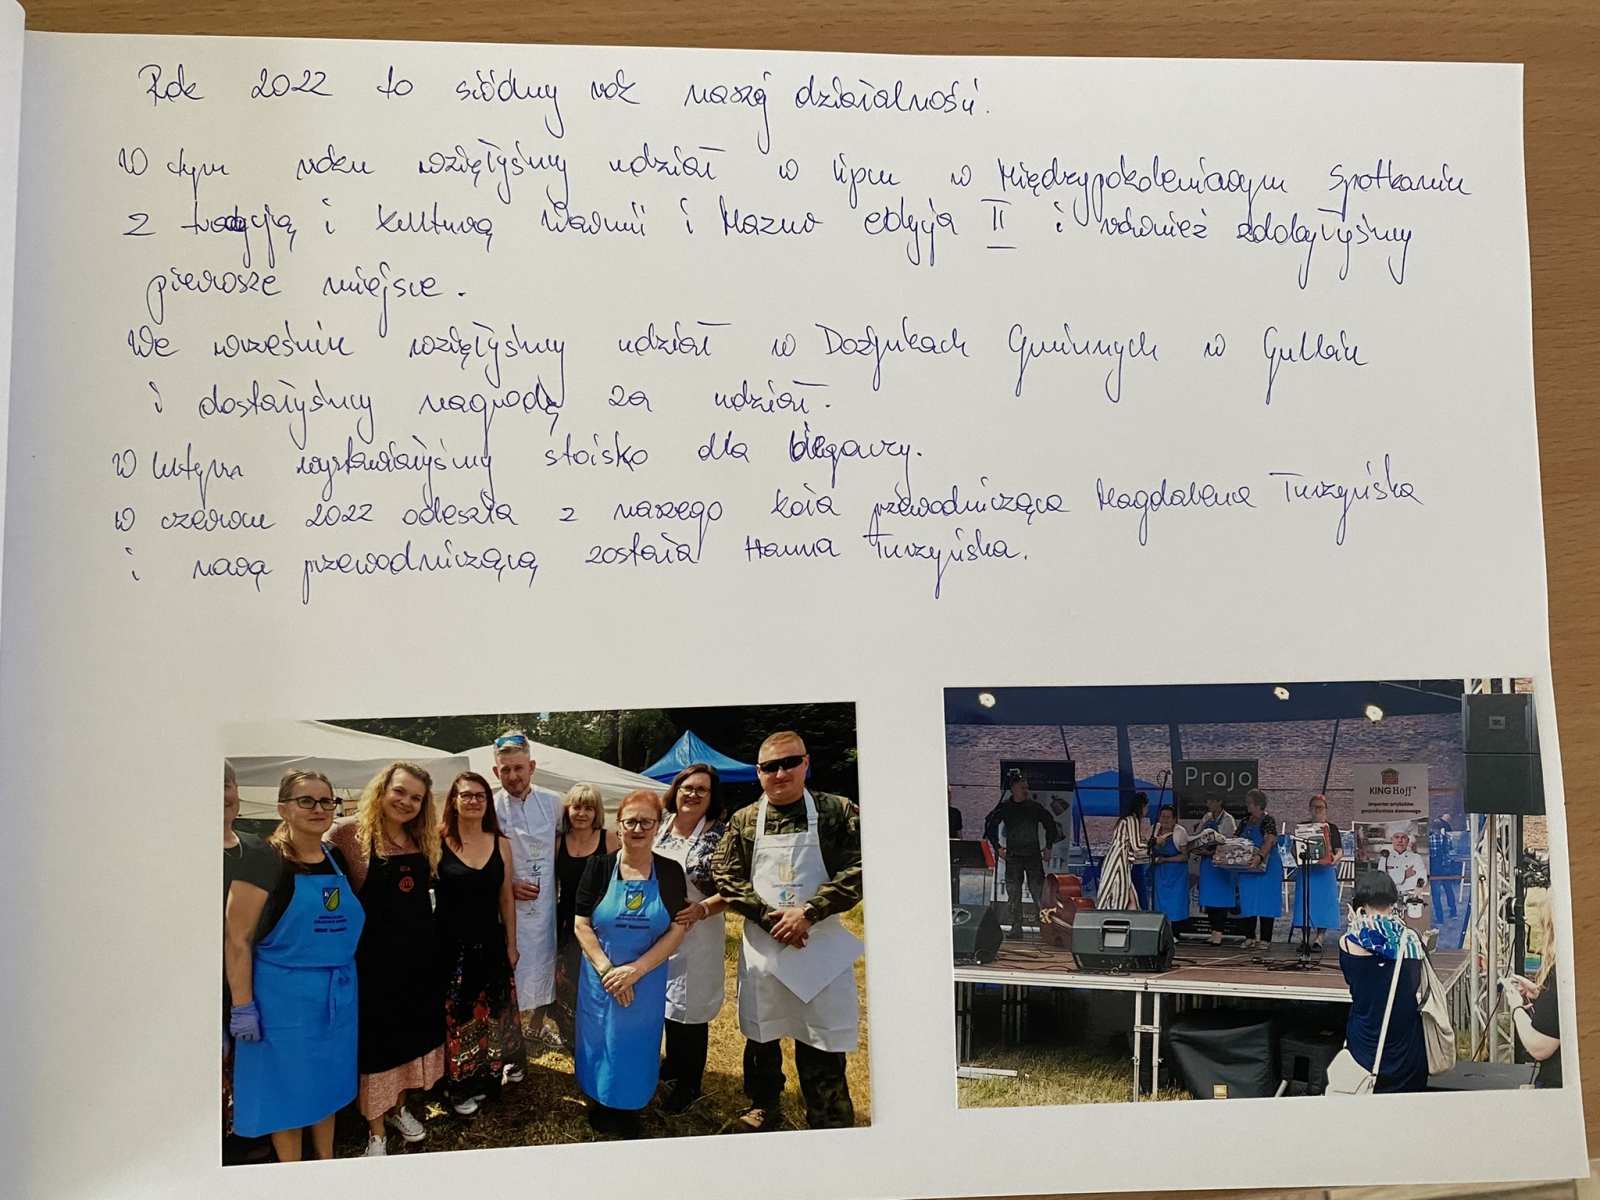 Rok 2022 to siódmy rok naszej działalności.
W tym roku wzięłyśmy udział w lipcu w Międzypokoleniowym Spotkaniu
z tradycją i kulturą Warmii i Mazur edycja II i również zdobyłyśmy
pierwsze miejsce.
We wrześniu wzięłyśmy udział w Dożynkach Gminnych w
i dostałyśmy nagrodę za udział.
W lutym wystawiałyśmy stoisko dla biegaczy.
W czerwcu 2022 odeszła z naszego koła przewodnicząca Magdalena Turzyńska
i nową przewodniczącą została Hanna Turzyńska.
Prajo
KING Hoff
importer artykułów
gospodarstwa domowego
Ola